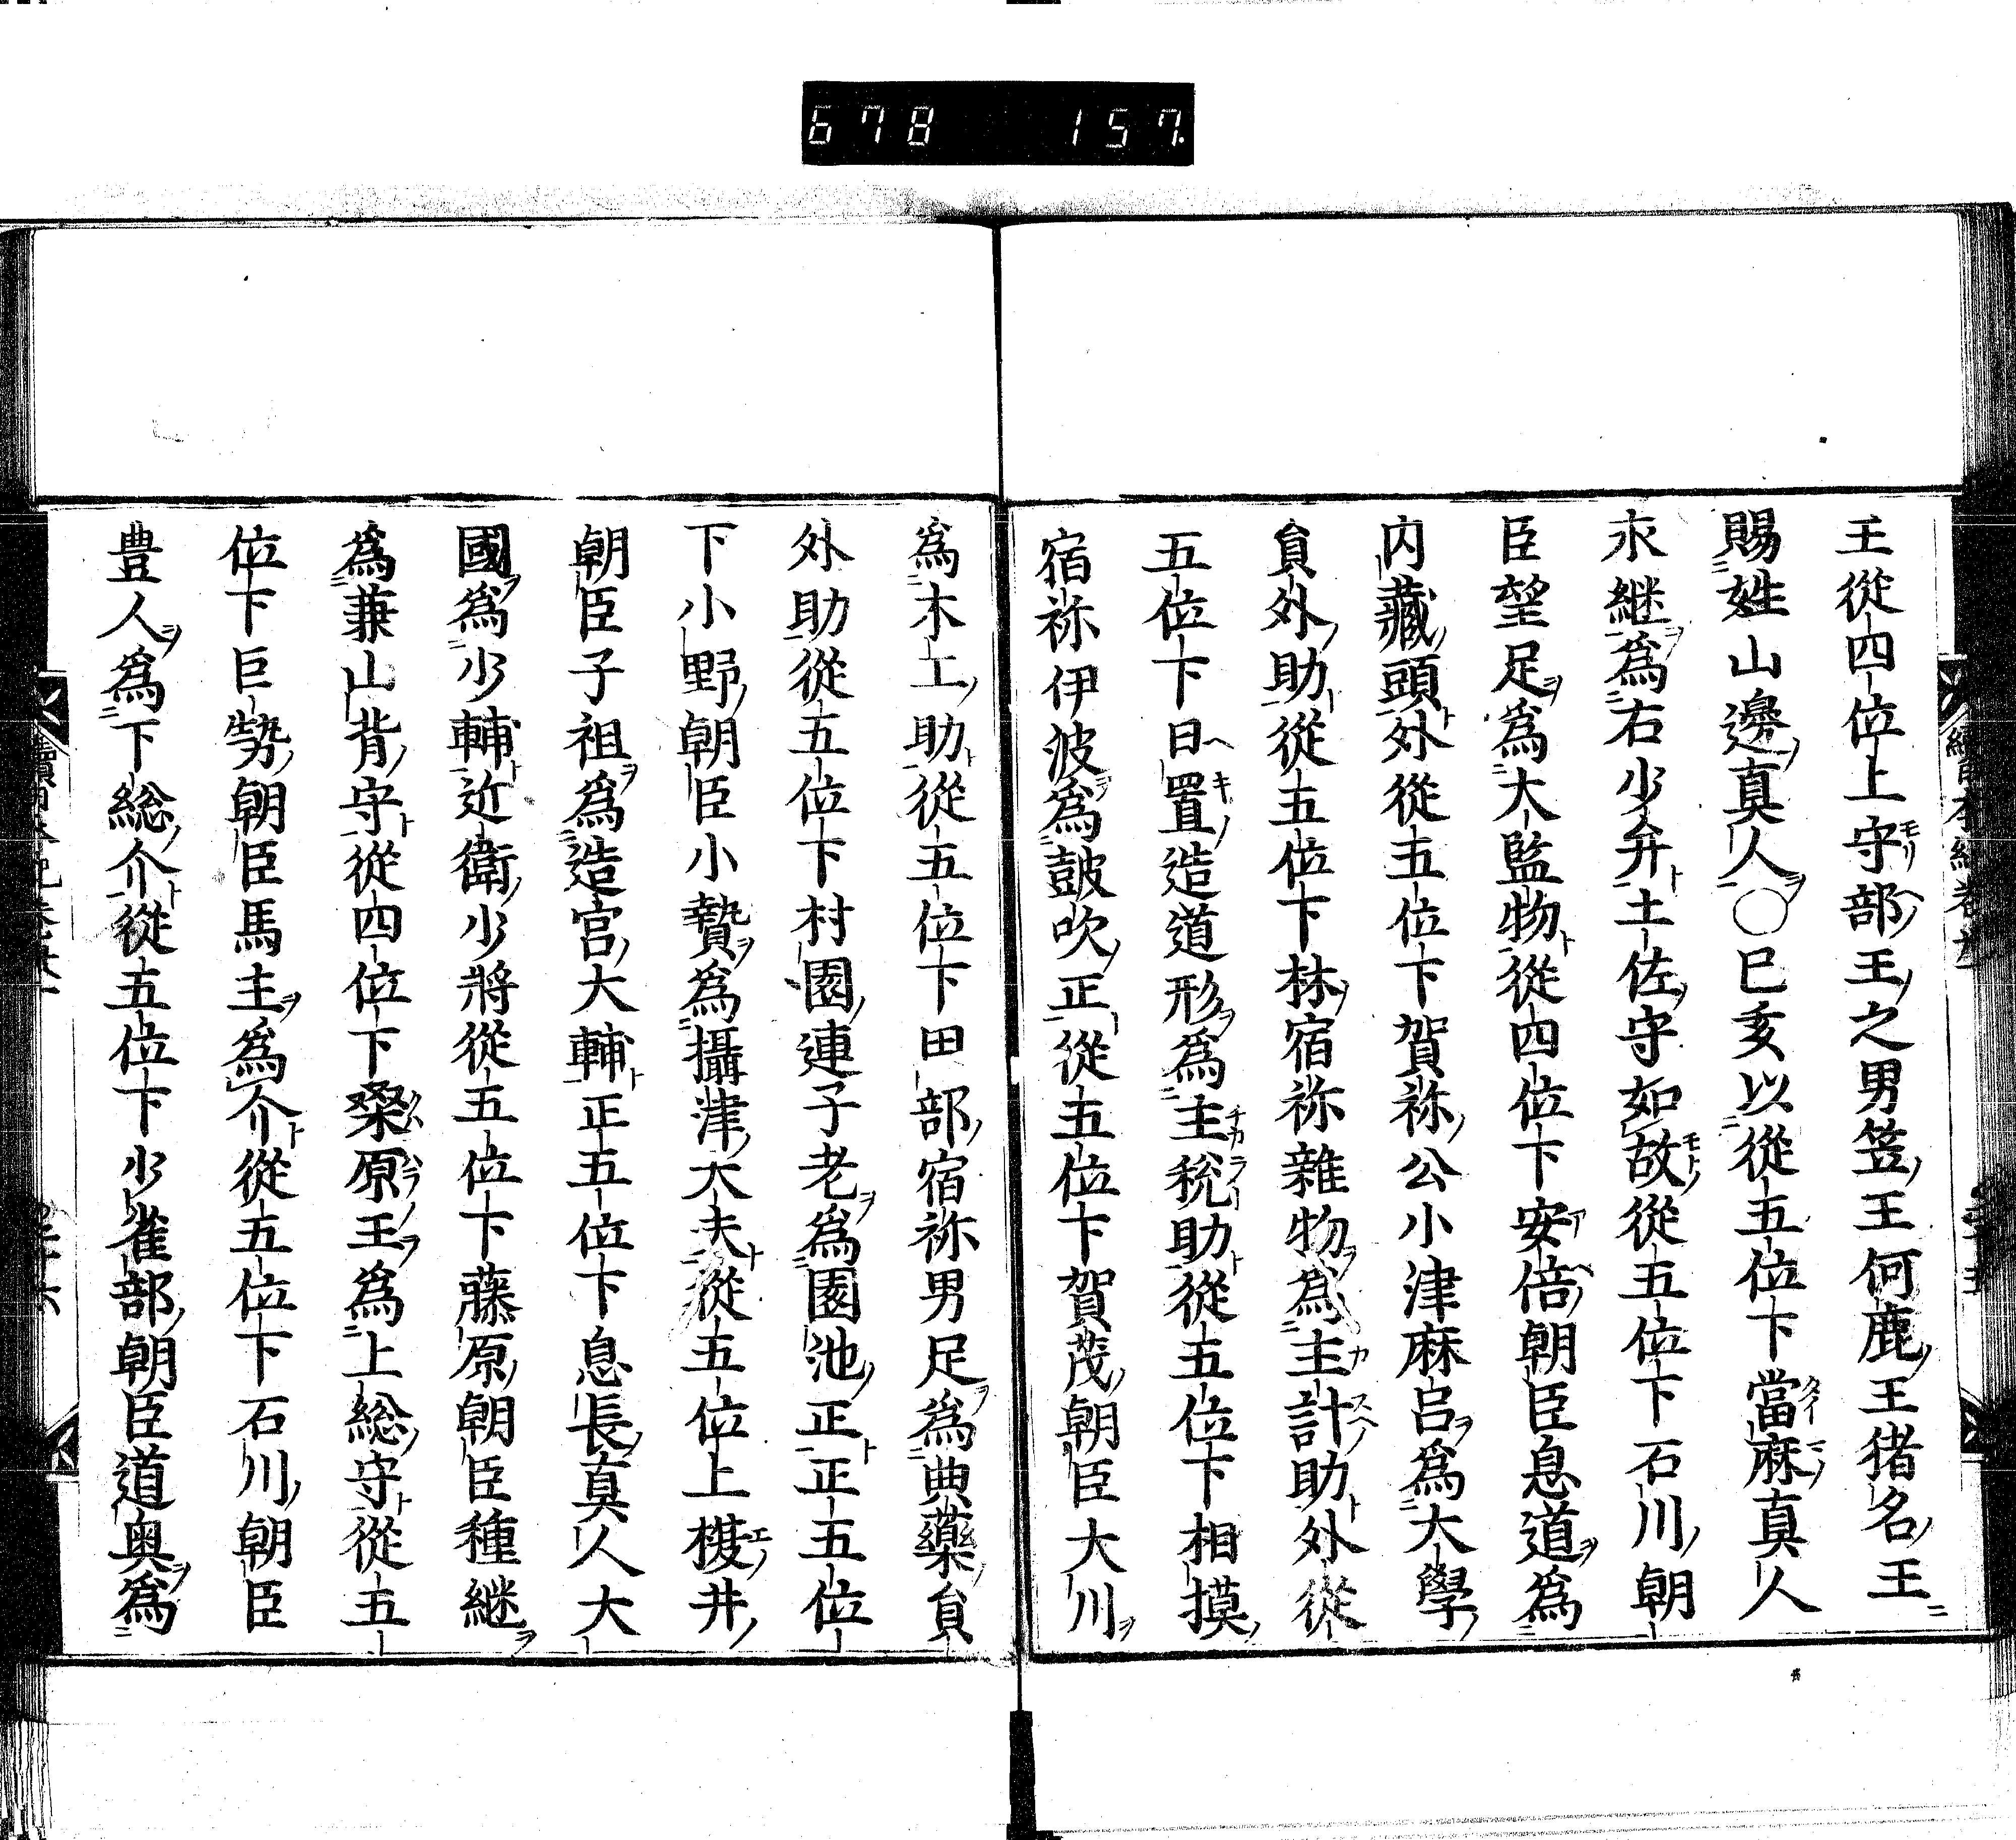 678 157
王從四位上守部王之男笠王何鹿王猪名王
賜姓山邊真人○已亥以從五位下當麻真人
永継為右少弁土佐守如故從五位下石川朝
臣望足為大監物從四位下安倍朝臣息道為
内藏頭外從五位下賀祢公小津麻呂為大學
貟外助從五位下林宿祢雜物為主計助外從
五位下日置造道形為主税助從五位下相摸
宿祢伊波為鼓吹正從五位下賀茂朝臣大川
為木工助從五位下田部宿祢男足為典藥貟
外助從五位下村國連子老為園池正正五位
下小野朝臣小贄為攝津大夫從五位上榎井
朝臣子祖為造宮大輔正五位下息長真人大
國為少輔近衛少將從五位下藤原朝臣種継
為兼山背守從四位下桑原王為上総守從五
位下巨勢朝臣馬主為介從五位下石川朝臣
豊人為下総介從五位下少雀部朝臣道奥為